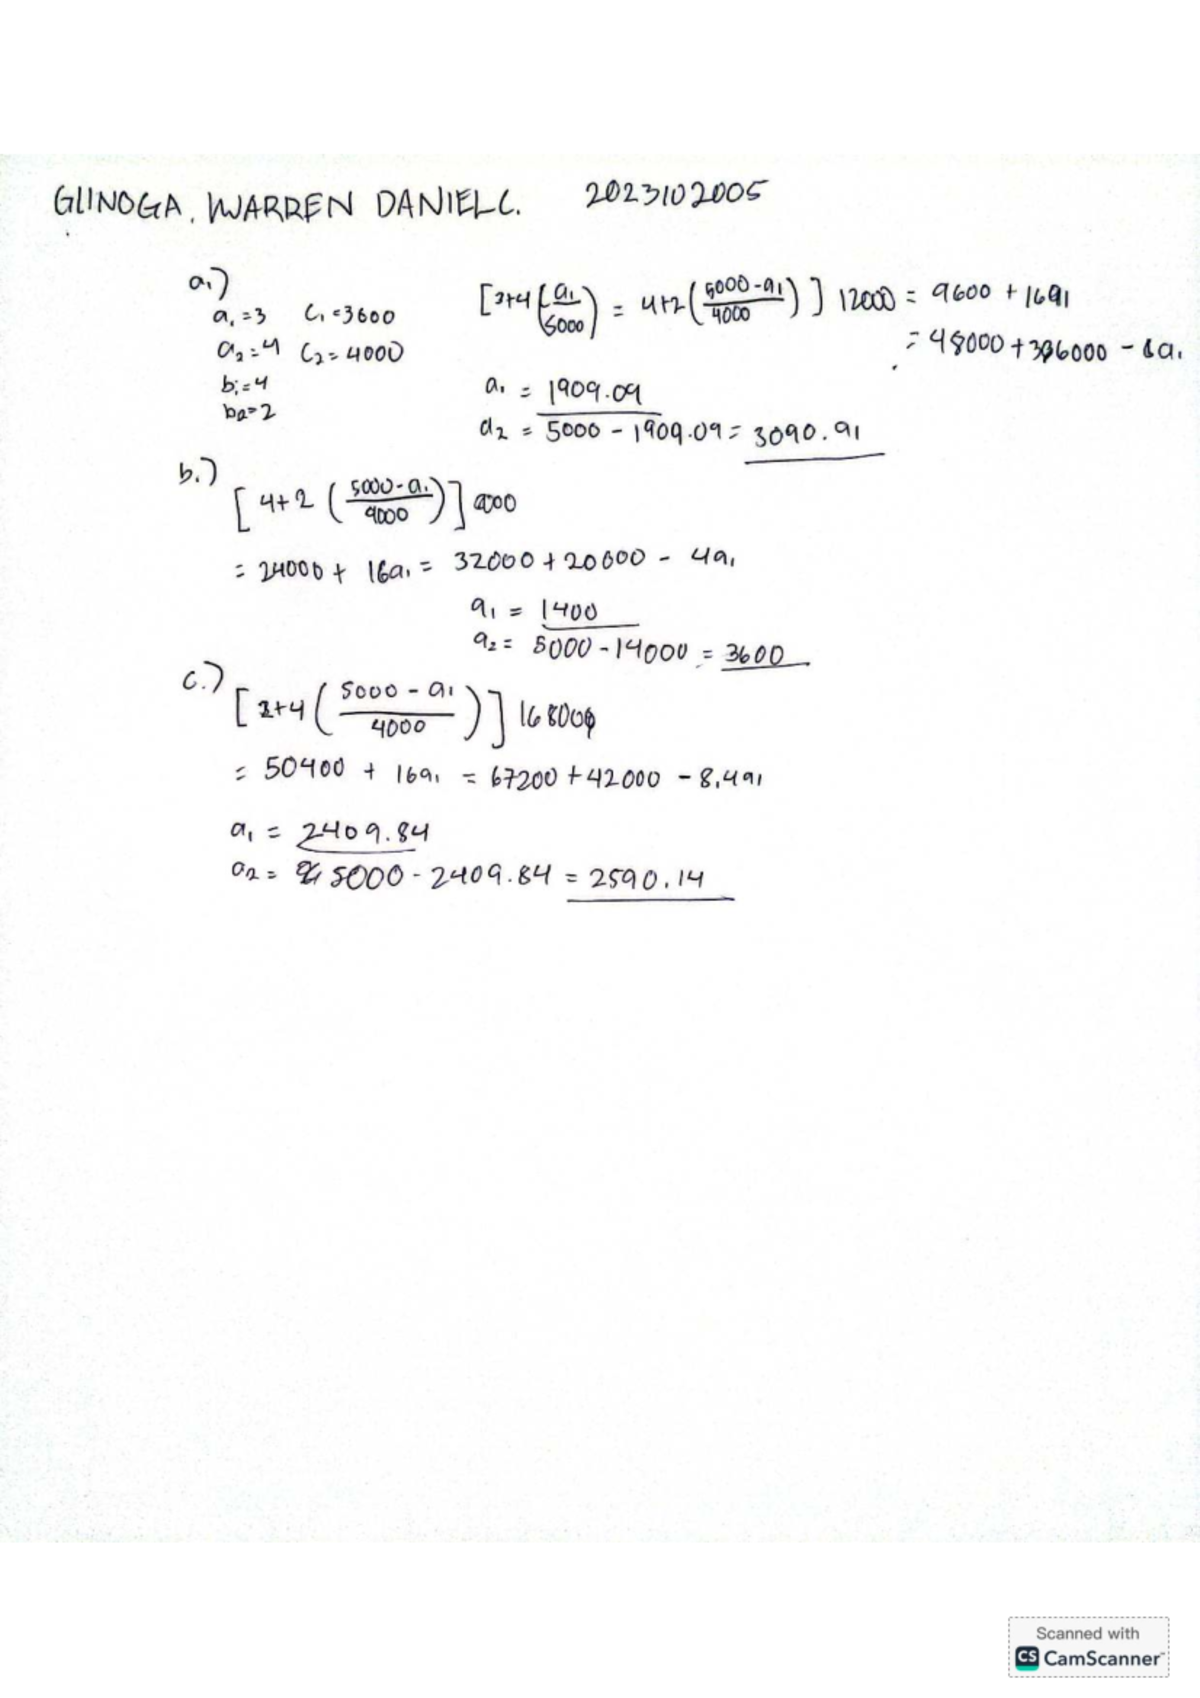 GLINOGA, WARREN DANIEL C. 2023102005
a.)
a₁ = 3 C₁ = 3600
a₂ = 4 C₂ = 4000
b₁ = 4
b₂ = 2
[3+4(a₁/5000) = 4+2(5000-a₁/4000)] 12000 = 9600 + 16a₁
= 48000 + 36000 - 6a₁
a₁ = 1909.09
a₂ = 5000 - 1909.09 = 3090.91
b.)
[4+2(5000-a₁/4000)] 8000
= 24000 + 16a₁ = 32000 + 20000 - 4a₁
a₁ = 1400
a₂ = 5000 - 14000 = 3600
c.)
[3+4(5000-a₁/4000)] 16800
= 50400 + 16a₁ = 67200 + 42000 - 8.4a₁
a₁ = 2409.84
a₂ = 5000 - 2409.84 = 2590.14
Scanned with
CS CamScanner